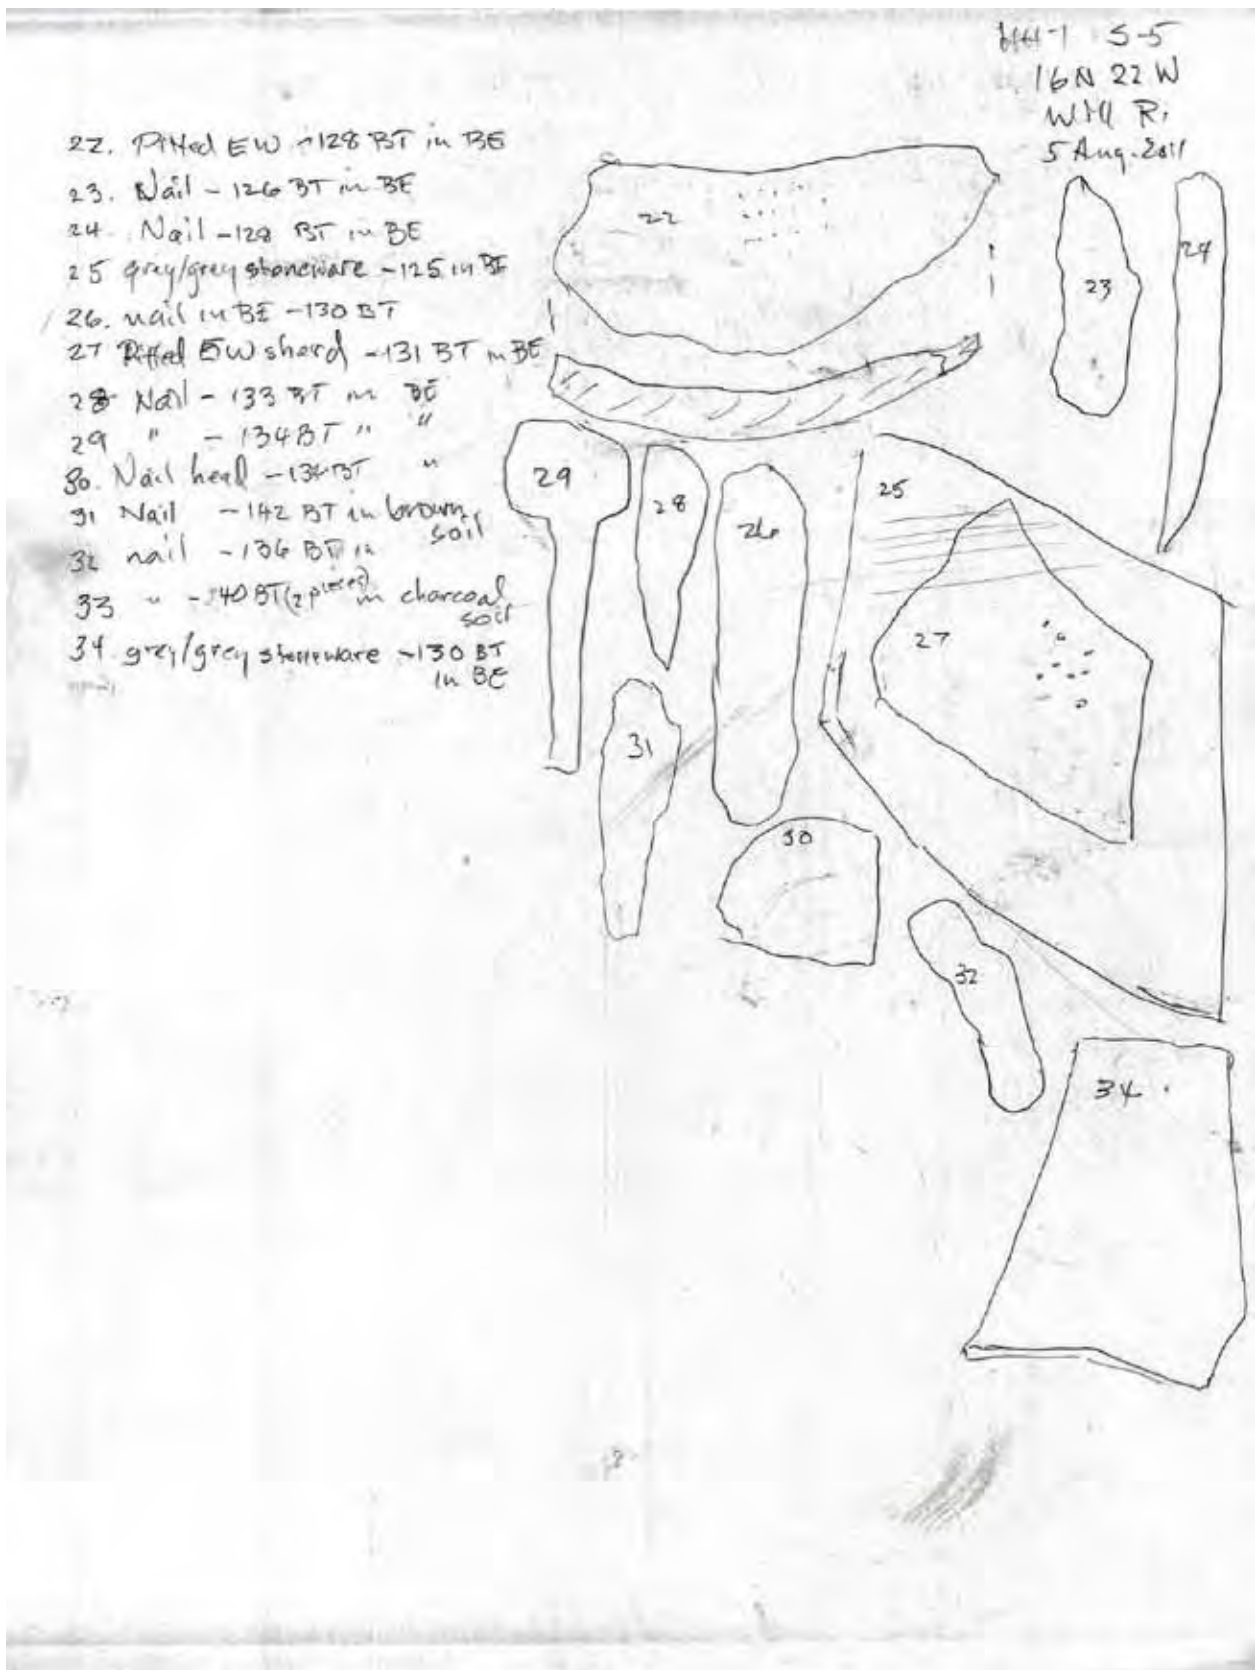 S-5
16N 22 W
Will R.
5 Aug. 2011
22. Pitted EW -128 BT in BE
23. Nail - 126 BT in BE
24. Nail -128 BT in BE
25 grey/grey stoneware -125 in BE
26. nail in BE -130 BT
27 Pitted EW sherd -131 BT in BE
28 Nail - 133 BT in BE
29 " - 134 BT " "
30. Nail head -134 BT "
31 Nail -142 BT in brown
soil
32 nail -136 BT in
33 " -140 BT (2 pieces) in charcoal
soil
34. grey/grey stoneware -130 BT
in BE
22
23
24
25
26
27
28
29
30
31
32
34